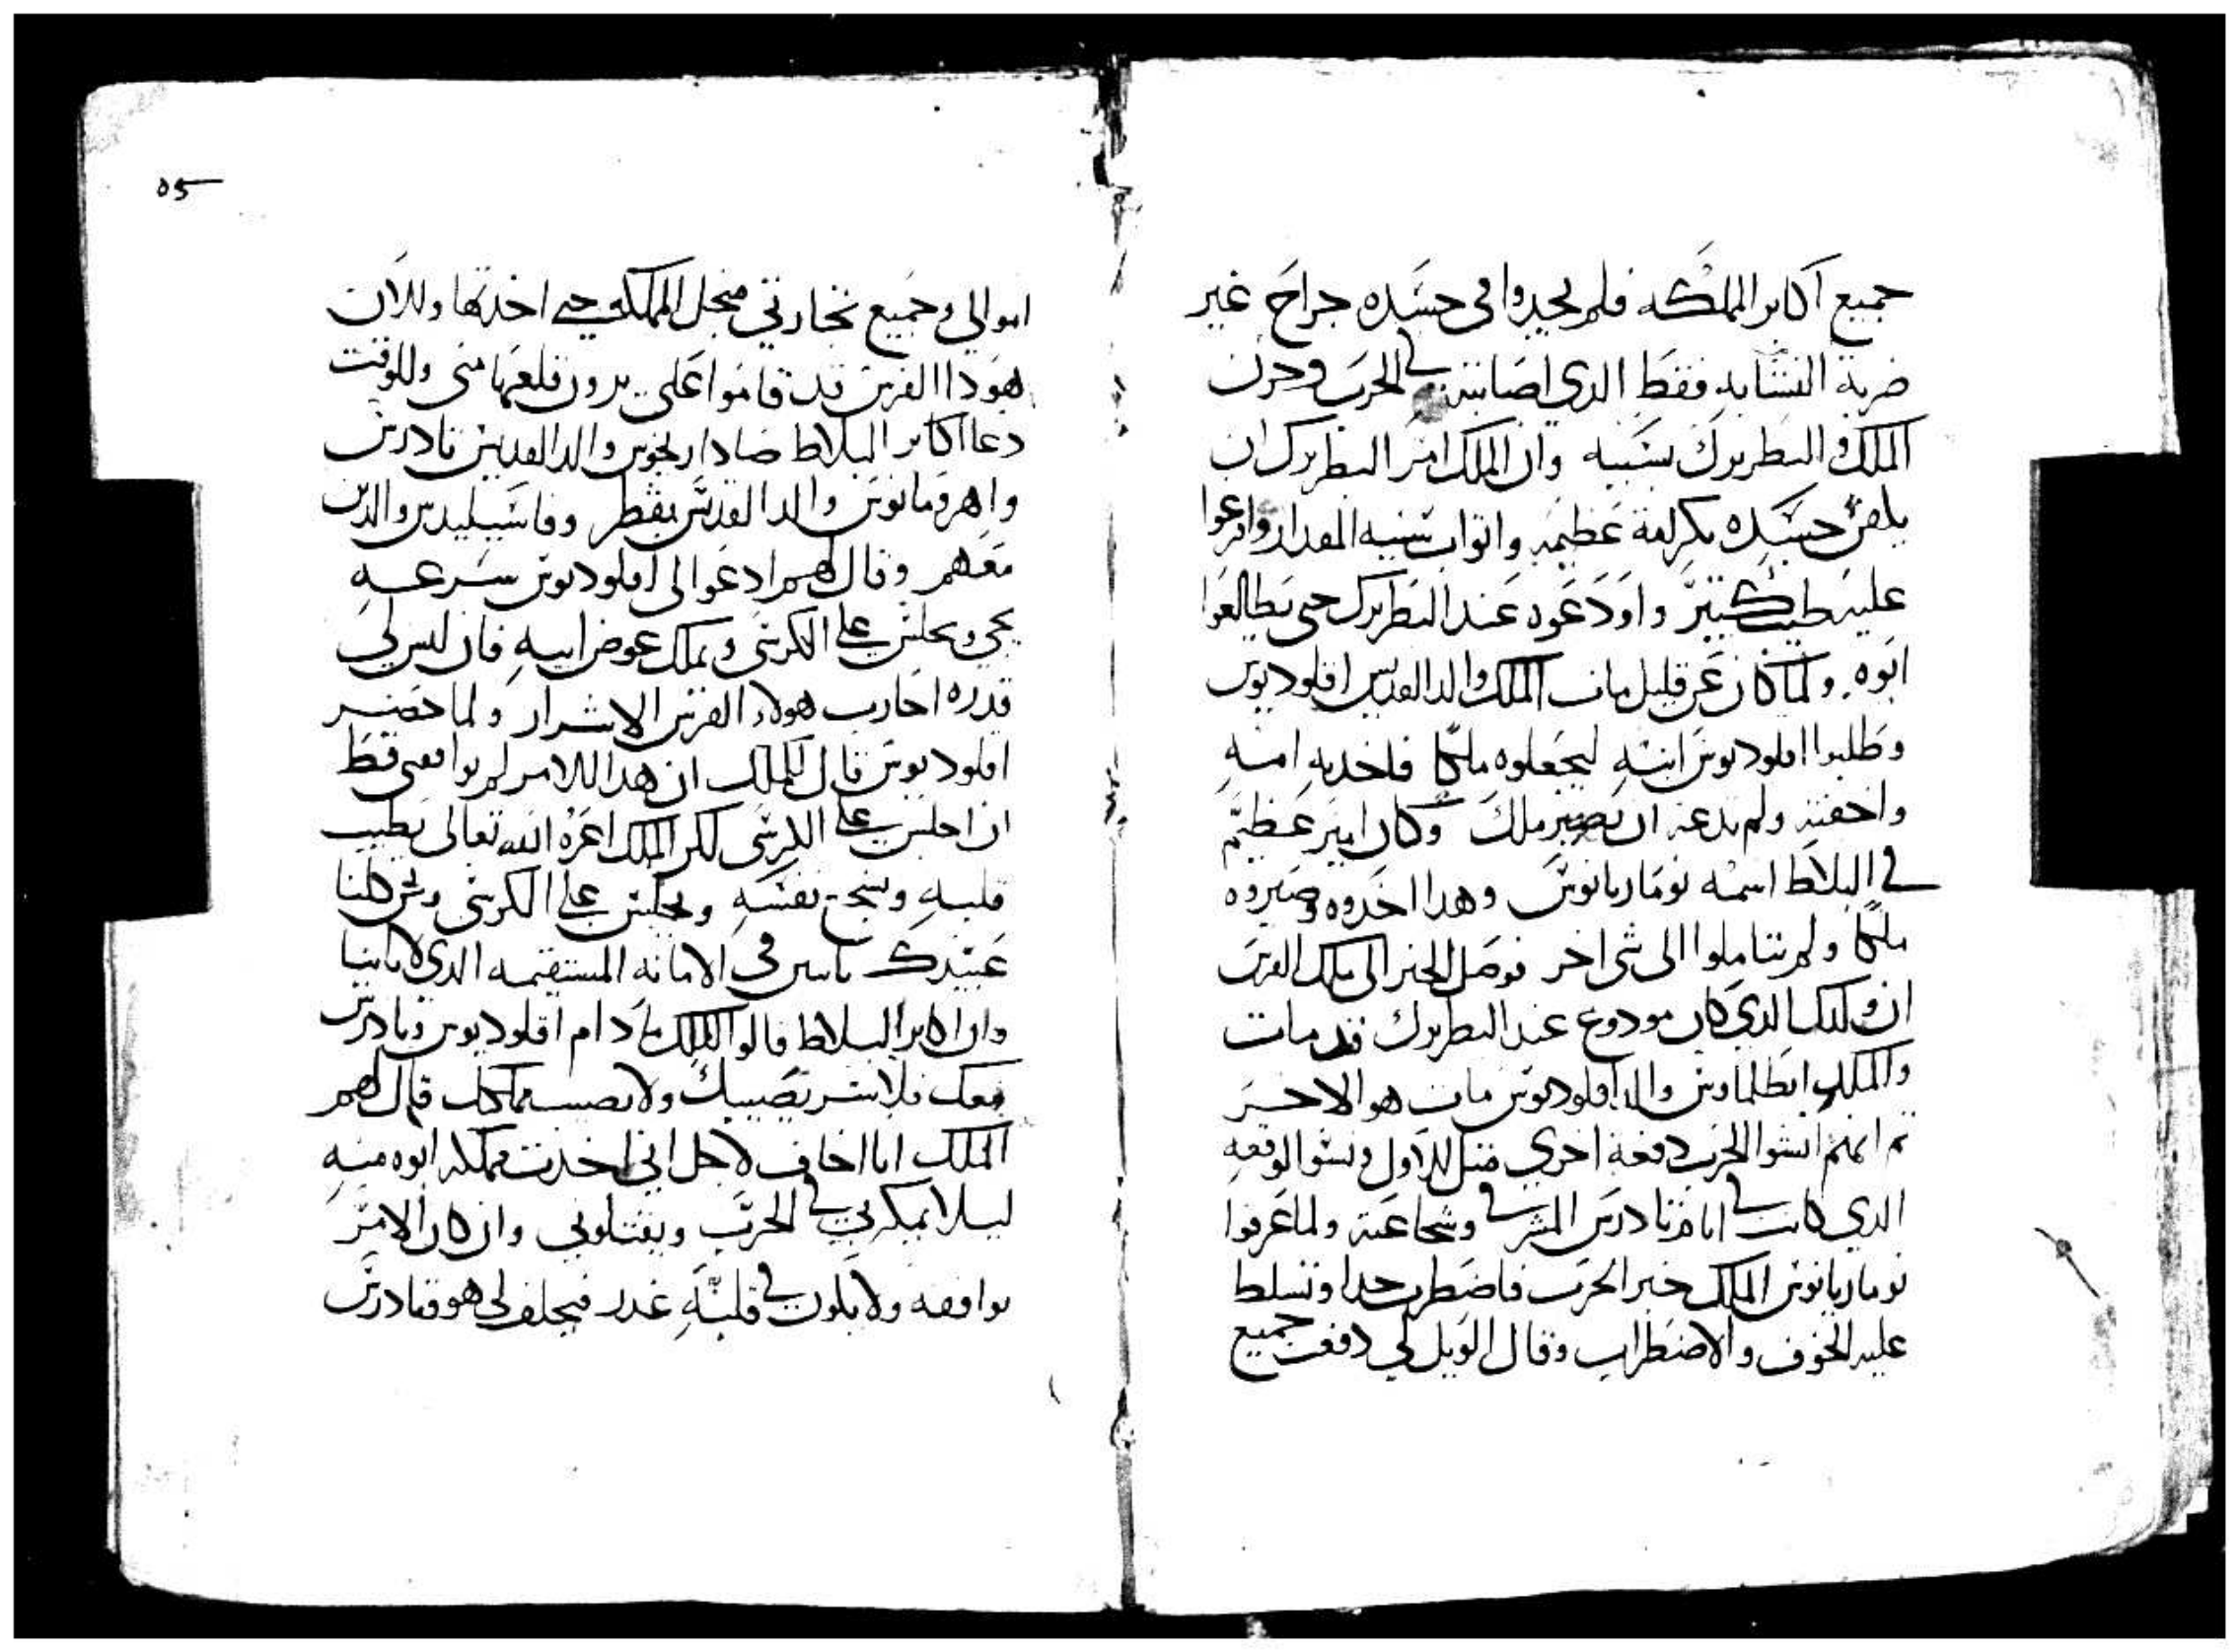 جميع اكابر المملكه فلم يجدوا في جسده جراح غير
ضربة النشابه فقط الدي اصابته في الحرب وحزن
الملك والبطريرك بسببه وان الملك امر البطريرك ان
يلفن جسده بكرامة عظيمه واتواب سنيه المقدار وافرغوا
عليه طيب كتير واودعوه عند البطريرك حتى يطالعوا
ابوه ولما كان عن قليل مات الملك والد القديس اقلوديوس
وطلبوا اقلوديوس ابنه ليجعلوه ملكا فاخدته امه
واخفته ولم تدعه ان يصير ملك وكان امير عظيم
في البلاط اسمه نوماريانوس وهدا اخدوه وصيروه
ملكا ولم يتاملوا الى شي اخر فوصل الخبر الى ملك الفرس
ان ولدك الدي كان مودوع عند البطريرك قد مات
والملك ابطلماوس والد اقلوديوس مات هو الاخر
تم انهم انشوا الحرب دفعة اخري متل الاول ونسوا الوقعه
الدي كانت في ايام تادرس المشرقي وشجاعته ولما عرفوا
نوماريانوس الملك خبر الحرب فاضطرب جدا وتسلط
عليه الخوف والاضطراب وقال الويل لي دفعت جميع
اموالي وجميع تجارتي منجل المملكه حتى اخدتها وللان
هودا الفرس قد قاموا على يريدون قلعها منى وللوقت
دعا اكابر البلاط صادار يخوس والد القديس تادرس
واهرومانوس والد القديس بقطر وفاسيليدس والدين
معهم وقال لهم ادعوا لى اقلوديوس بسرعه
يجي ويجلس على الكرسى ويملك عوض ابيه فان ليس لي
قدره احارب هولاء الفرس الاشرار ولما حضر
اقلوديوس قال للملك ان هدا الامر لم يوافقنى قط
ان اجلس على الكرسى لكن الملك اعزه الله تعالى يطيب
قلبه ونفسه ويجلس على الكرسى ونحن كلنا
عبيدك في الامانه المستقيمه الدي لاباينا
وان اكابر البلاط قالوا للملك ما دام اقلوديوس وتادرس
معك فلا شر يصيبك ولا يصيب مملكتك قال لهم
الملك انا اخاف لاجل انى اخدت مملكة ابوه منه
ليلا يمكر بي في الحرب ويقتلونى وان كان الامر
يوافقه ولا يكون في قلبه غدر فيحلف لى هو وتادرس